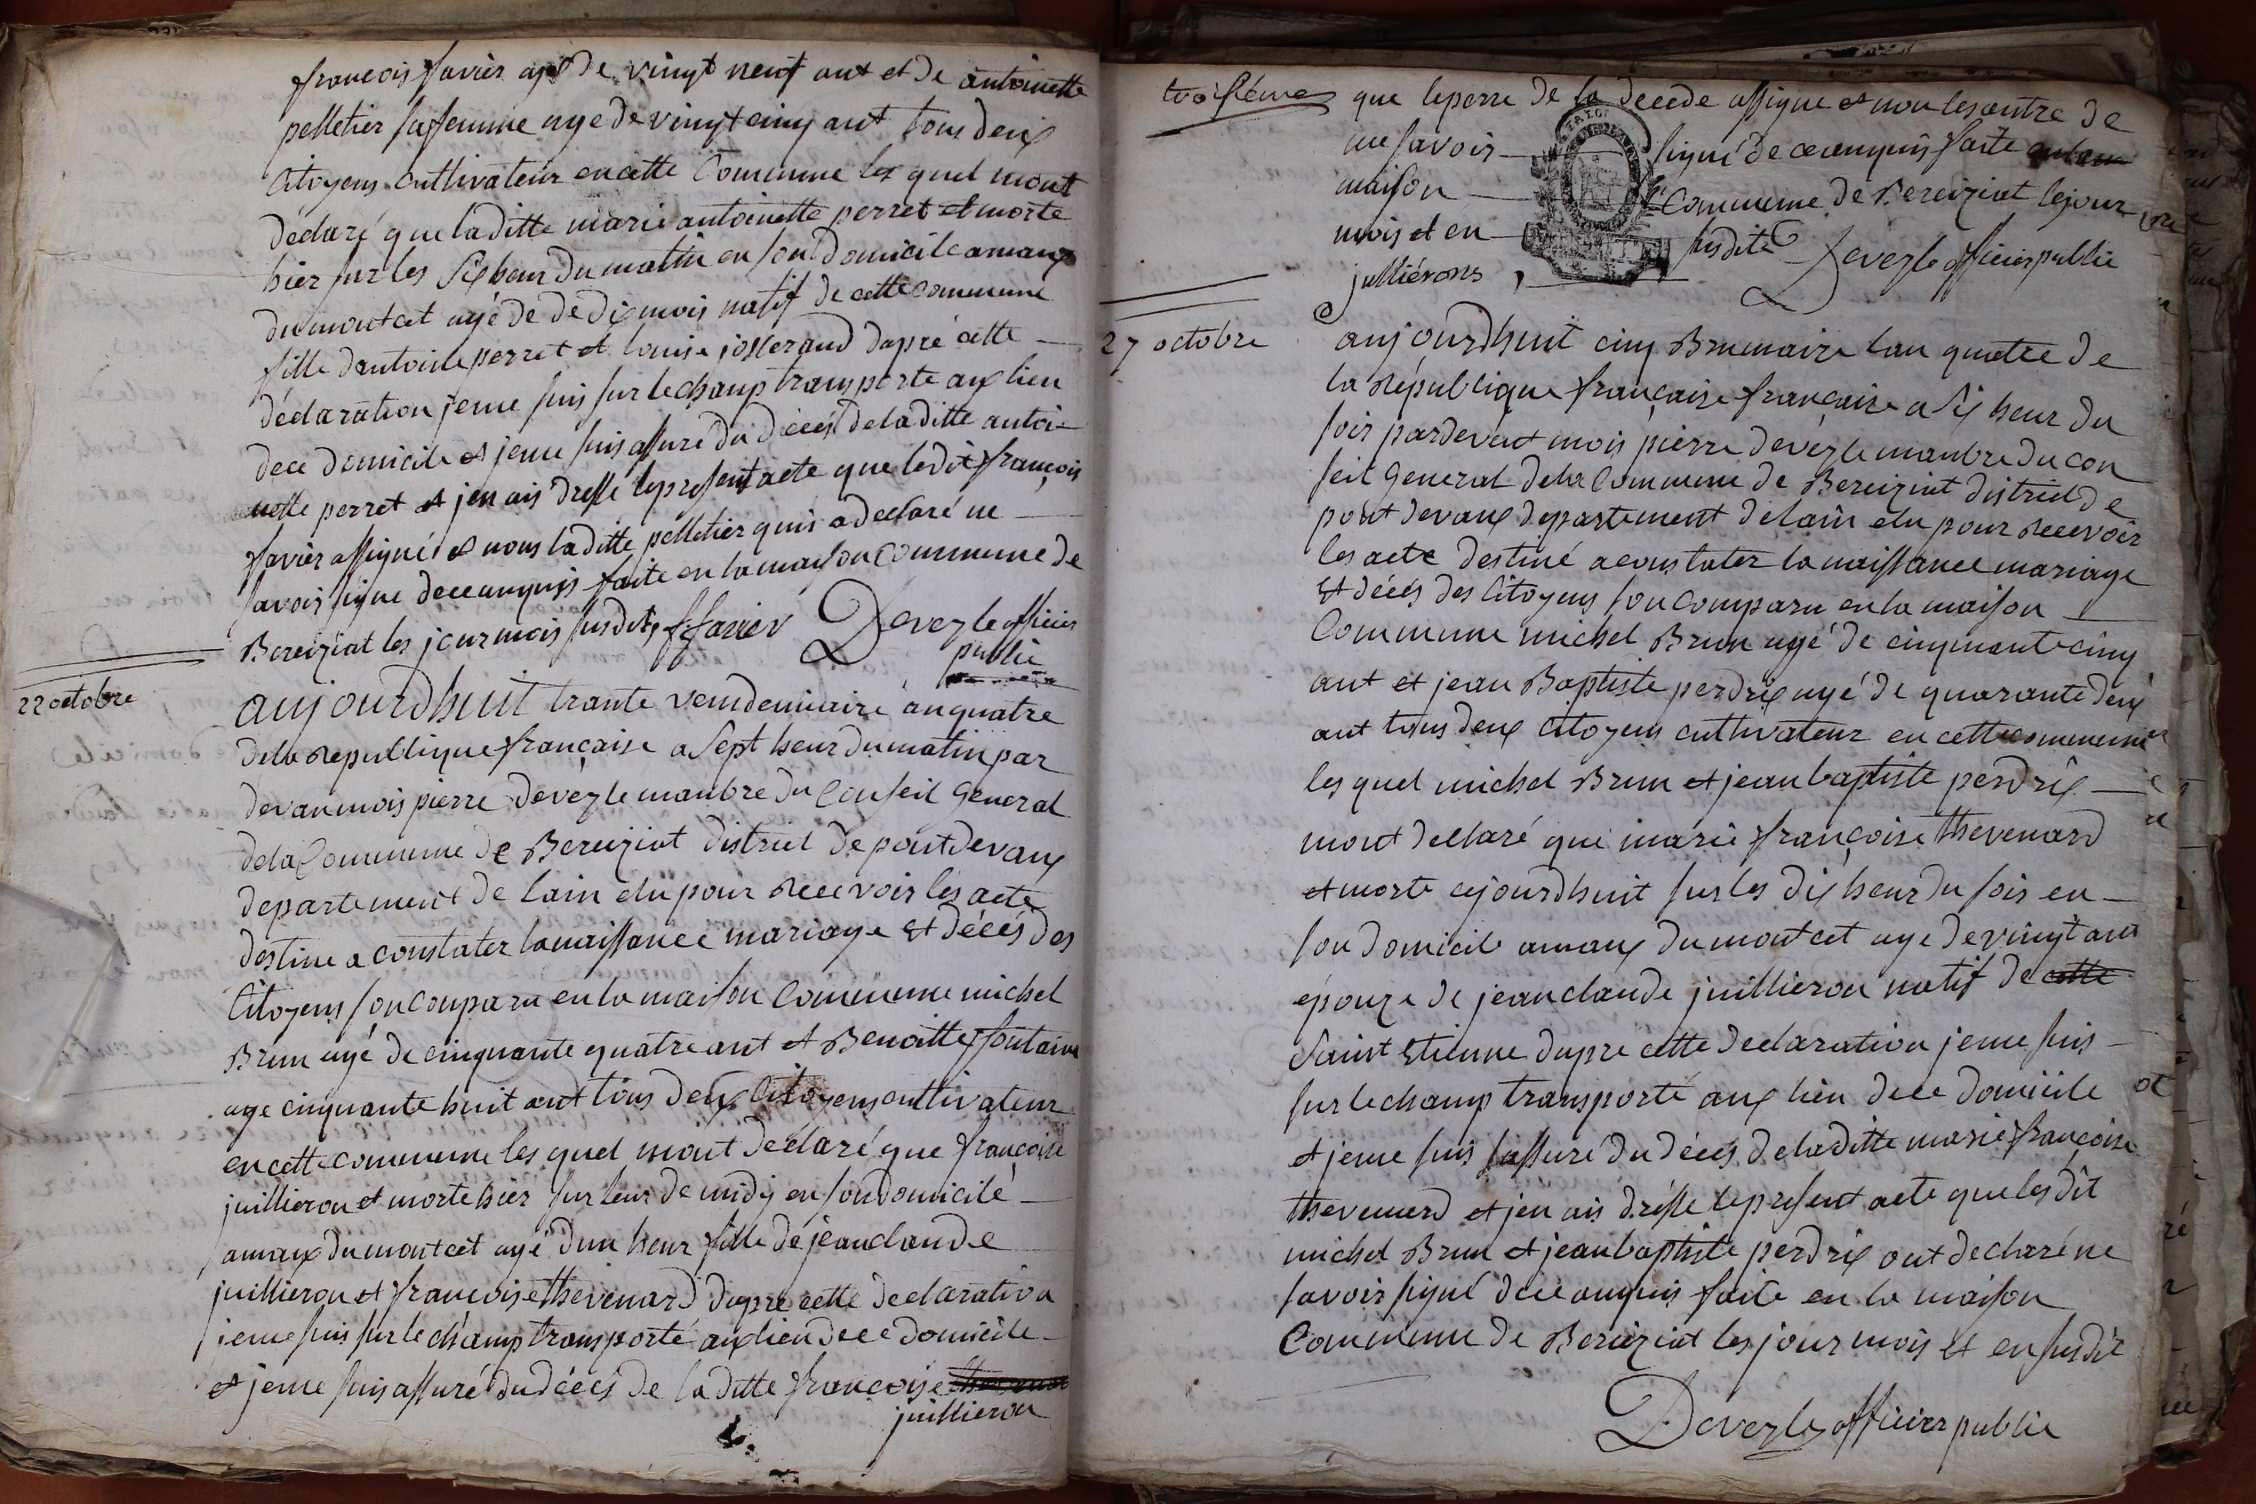 francois favier agé de vingt neuf ant et de antoinette
pelletier sa femme age de vingt cinq ant tous deux
Citoyens cultivateur en cette Commune les quel mont
déclaré que laditte marie antoinette perret et morte
hier sur les six heur du matin en son domicile amaux
dumontcet agé de de dix mois natif de cette commune
fille dantoine perret et louise josserand dapré cette
déclaration jeme suis sur lechamp transporte aux lien
dece domicile et jeme suis assuré du décés deladitte antoi
nette perret et jen ais dressé lepresent acte que ledit francois
favier assigné et nons laditte pelletier quis a declaré ne
savoir signe deceanquis faite en la maison commune de
Bereiziat les jour mois susdit f favier Deveyle officier
public
22 octobre
aujourdhuit trante vendemiaire anquatre
dela republique française a sept heur dumatin par
devanmois pierre deveyle manbre du Conseil General
dela Commune de Bereiziat district de pontdevaux
departement de lain elu pour recevoir les acte
destine a constater lanaissance mariage et décés des
Citoyens son conparu en la maison Commune michel
Brun agé de cinquante quatre ant et Benoitte fontaine
age cinquante huit ant tous deux Citoyens cultivateur
en cette commune les quel mont déclaré que francoise
juillieron et morte hier sur leur de midy en son domicile
amaux dumontcet agé dun heur fille de jeanclaude
juillieron et francoise thevenard dapre cette declaration
jeme suis sur le champ transporté aux lien dece domicile
et jeme suis assuré du décés de laditte françoise
juillieron
troisiéme
que leperre de la decede assigne et non lesautre de
ne savoir signé de ceanquis faite
maison Commune de Bereiziat lejour
mois et en susdite Deveyle officier public
juilliérons
27 octobre
aujourdhuit cinq Brumaire lan quatre de
la république française française a six heur du
soir pardevant mois pierre deveyle manbre du con
seil general dela Commune de Bereiziat district de
pont devaux departement delain elu pour recevoir
les acte destiné aconstater la naissance mariage
Et décés des Citoyens son comparu en la maison
Commune michel Brun agé de cinquante cinq
ant et jean Baptiste perdrix agé de quarante deux
ant tous deux Citoyens cultivateur en cette commune
les quel michel Brun et jean baptiste perdrix
mont declaré que marie françoise thevenard
et morte cejourdhuit sur les dix heur du soir en
son domicile amaux dumontcet age de vingt ant
épouze de jeanclaude juillieron natif de cette
Saint Etienne dapre cette declaration jeme suis
sur lechamp transporté aux lien dece domicile
et jeme suis assuré du décés deladitte marie françoise
thevenard et jen ais dresse lepresent acte que les dit
michel Brun et jeanbaptiste perdrix ont declaré ne
savoir signé deceanquis faite en la maison
Commune de Bereiziat les jour mois et en susdit
Deveyle officier public